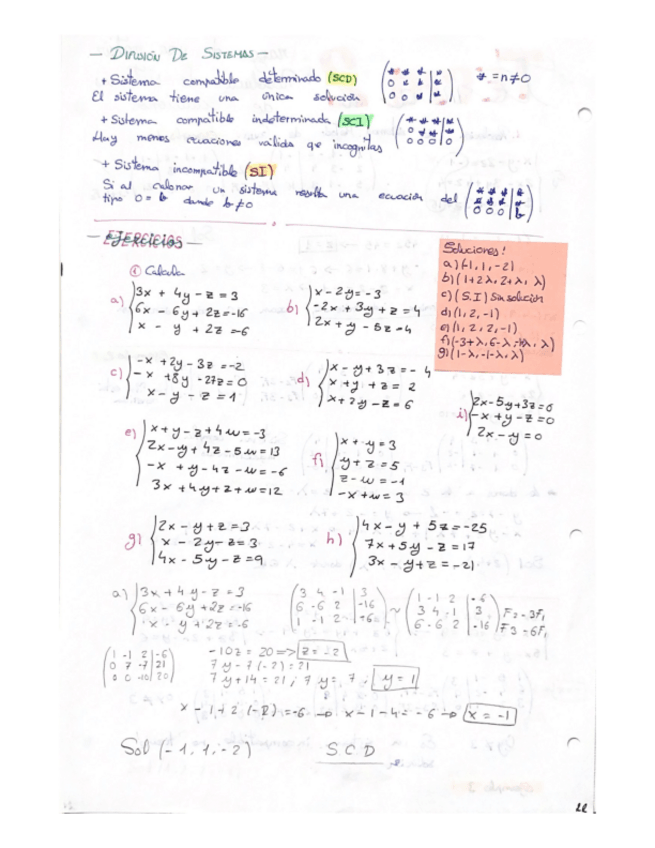 — DIVISIÓN DE SISTEMAS —
+ Sistema compatible determinado (SCD)
(* * * | *
0 * * | *
0 0 * | *) * = n ≠ 0
El sistema tiene una única solución
+ Sistema compatible indeterminado (SCI)
(* * * | *
0 * * | *
0 0 0 | 0)
Hay menos ecuaciones válida qe incognitas
+ Sistema incompatible (SI)
Si al un sistema resulta una ecuación del
tipo 0 = b donde b ≠ 0
(* * * | *
* * * | *
0 0 0 | b)
— EJERCICIOS —
Soluciones!
a) (-1, 1, -2)
b) (1+2λ, 2+λ, λ)
c) (S.I) Sin solución
d) (1, 2, -1)
e) (1, 2, 2, -1)
f) (-3+λ, 6-λ, -1+λ, λ)
g) (1-λ, -1-λ, λ)
① Calcula
a) 3x + 4y - z = 3
6x - 6y + 2z = -16
x - y + 2z = -6
b) x - 2y = -3
-2x + 3y + z = 4
2x + y - 5z = 4
c) -x + 2y - 3z = -2
-x + 8y - 27z = 0
x - y - z = 1
d) x - y + 3z = -4
x + y + z = 2
x + 2y - z = 6
i) 2x - 5y + 3z = 0
-x + y - z = 0
2x - y = 0
e) x + y - z + 4w = -3
2x - y + 4z - 5w = 13
-x + y - 4z - w = -6
3x + 4y + z + w = 12
f) x + y = 3
y + z = 5
z - w = -1
-x + w = 3
g) 2x - y + z = 3
x - 2y - z = 3
4x - 5y - z = 9
h) 4x - y + 5z = -25
7x + 5y - z = 17
3x - y + z = -21
a) 3x + 4y - z = 3
6x - 6y + 2z = -16
x - y + 2z = -6
(3 4 -1 | 3
6 -6 2 | -16
1 -1 2 | -6) ~ (1 -1 2 | -6
3 4 -1 | 3
6 -6 2 | -16) F2 - 3F1
F3 = 6F1
(1 -1 2 | -6
0 7 -7 | 21
0 0 -10 | 20)
-10z = 20 => z = -2
7y - 7(-2) = 21
7y + 14 = 21; 7y = 7; y = 1
x - 1 + 2(-2) = -6 → x - 1 - 4 = -6 → x = -1
Sol (-1, 1, -2) SCD